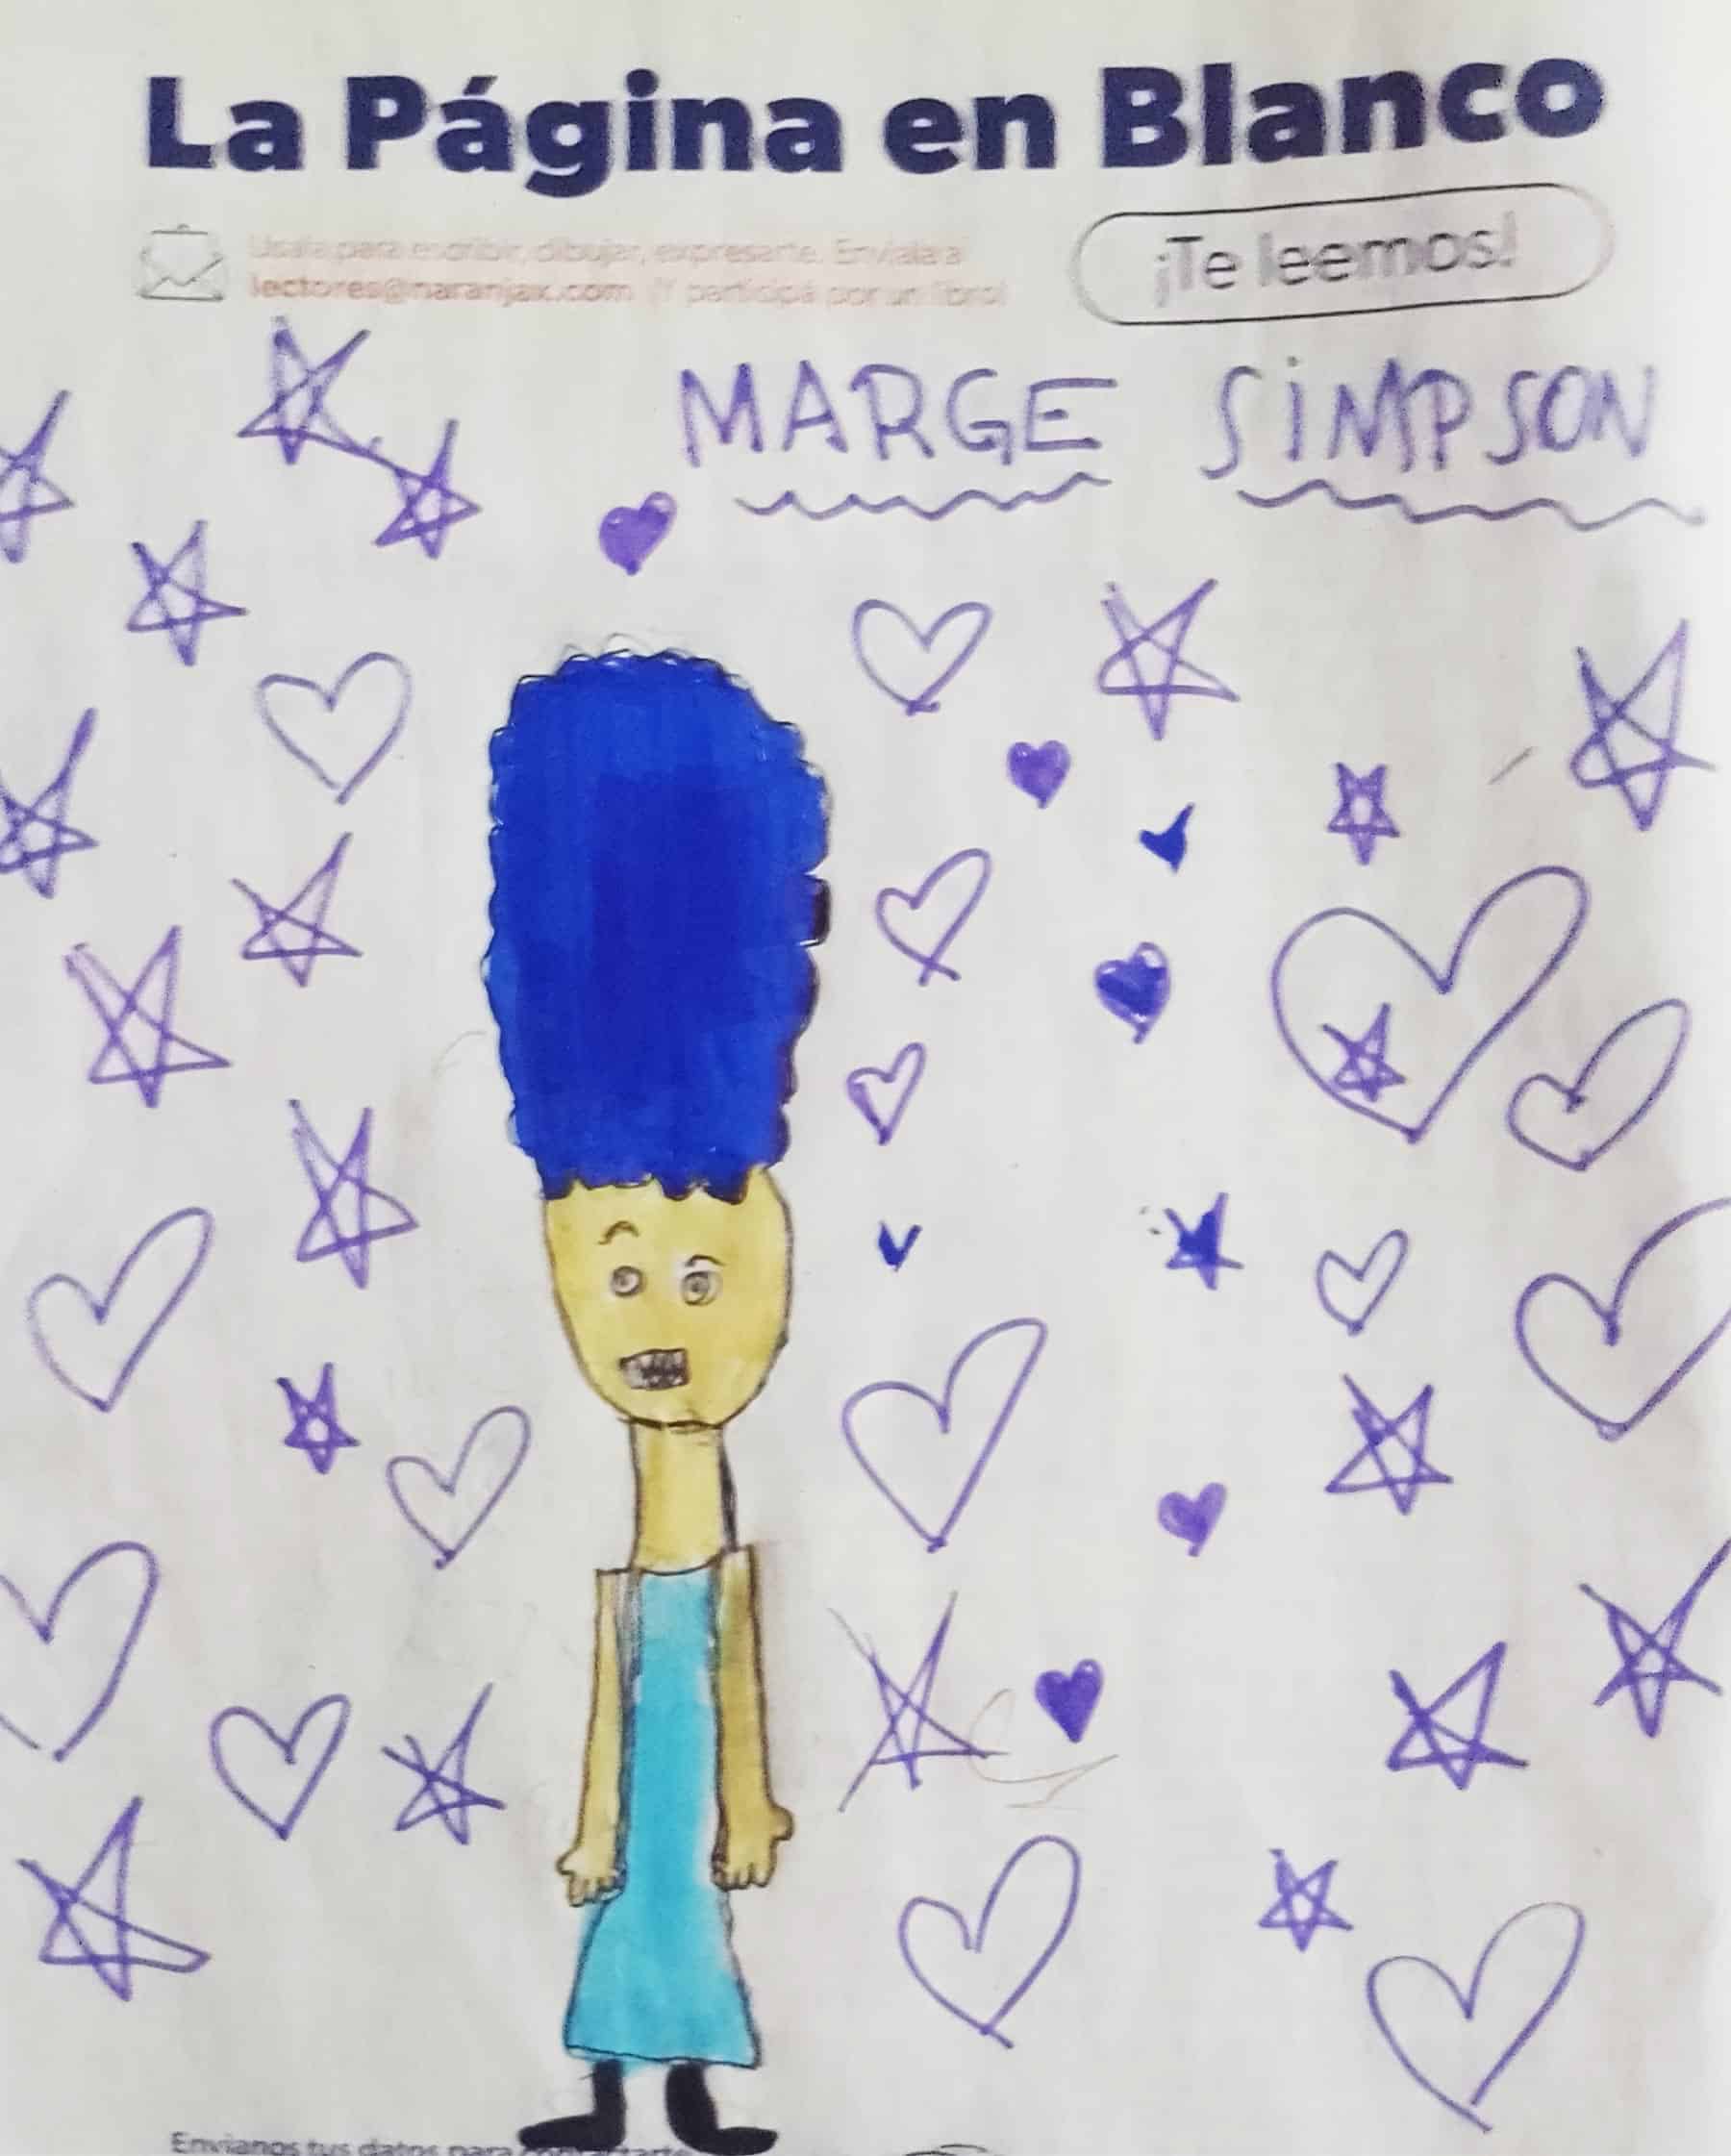 La Página en Blanco
Usala para escribir, dibujar, expresarte. Enviala a
lectores@naranjax.com ¡Y participá por un libro!
¡Te leemos!
MARGE SiMPSON
Envianos tus datos para contactarte